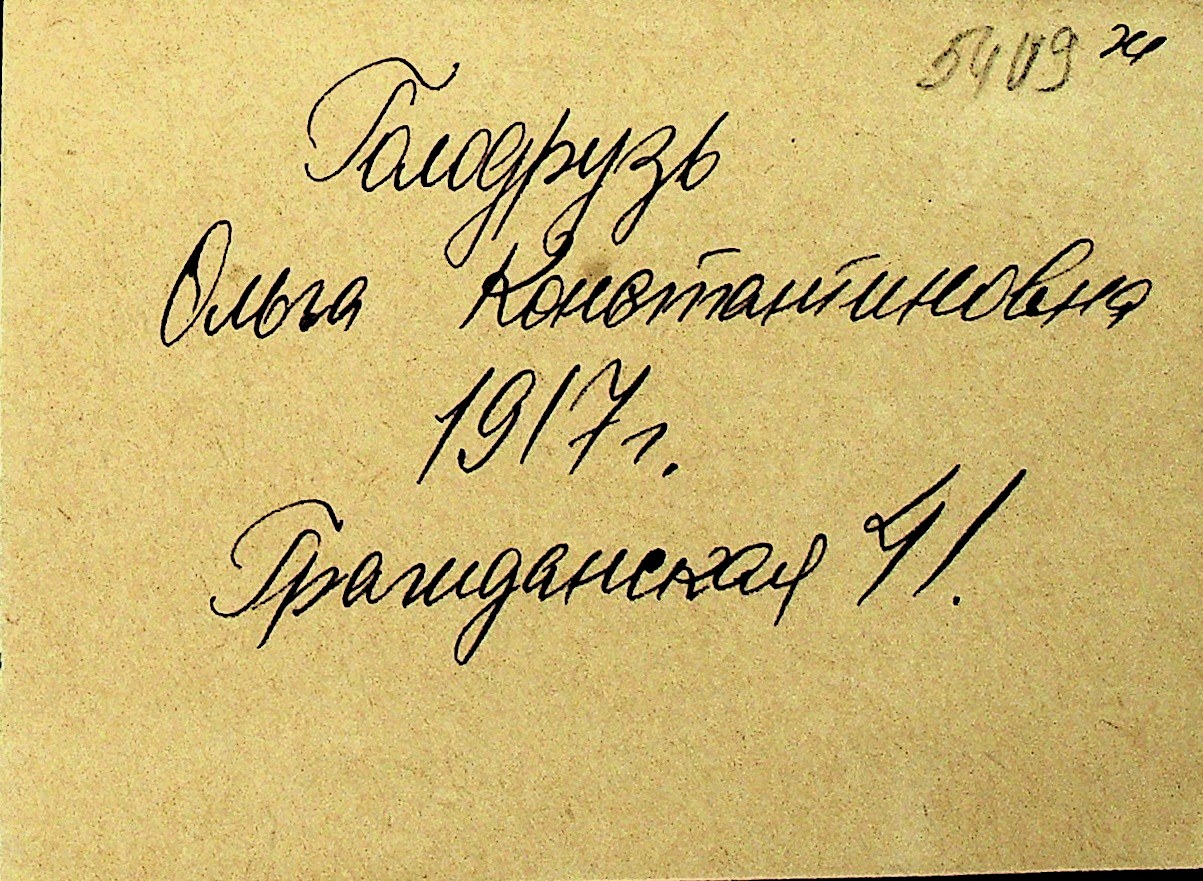 ж
Голодрузь
Ольга Константиновна
1917 г.
Гражданская 41.